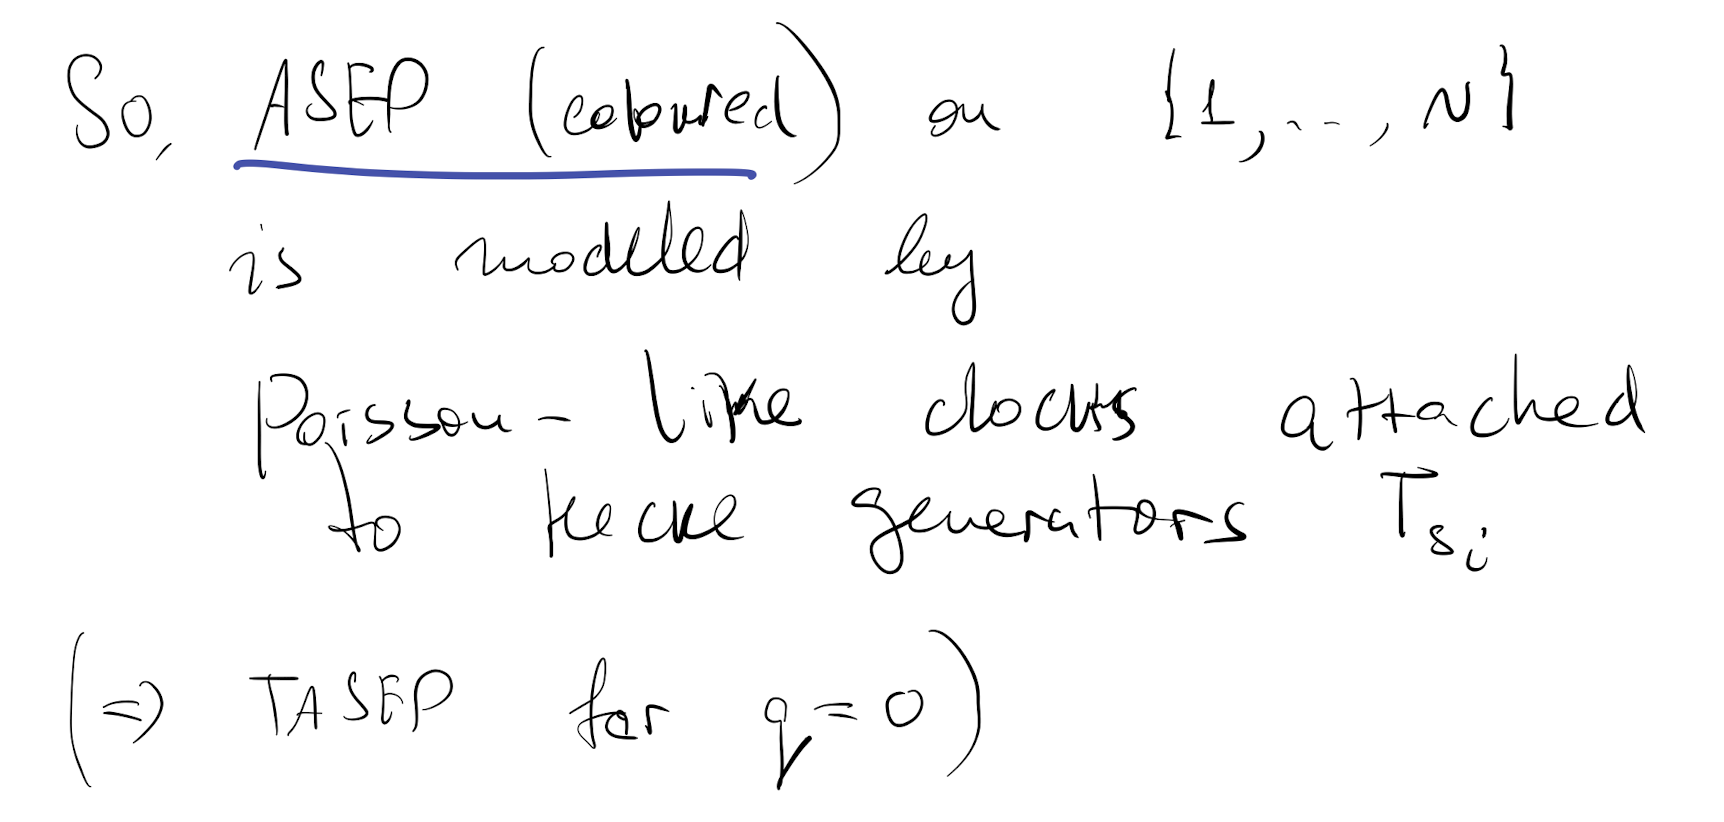 So, ASEP (coloured) on {1,..., N}
is modeled by
Poisson-like clocks attached
to Hecke generators T_{s_i}
(⇒ TASEP for q=0)